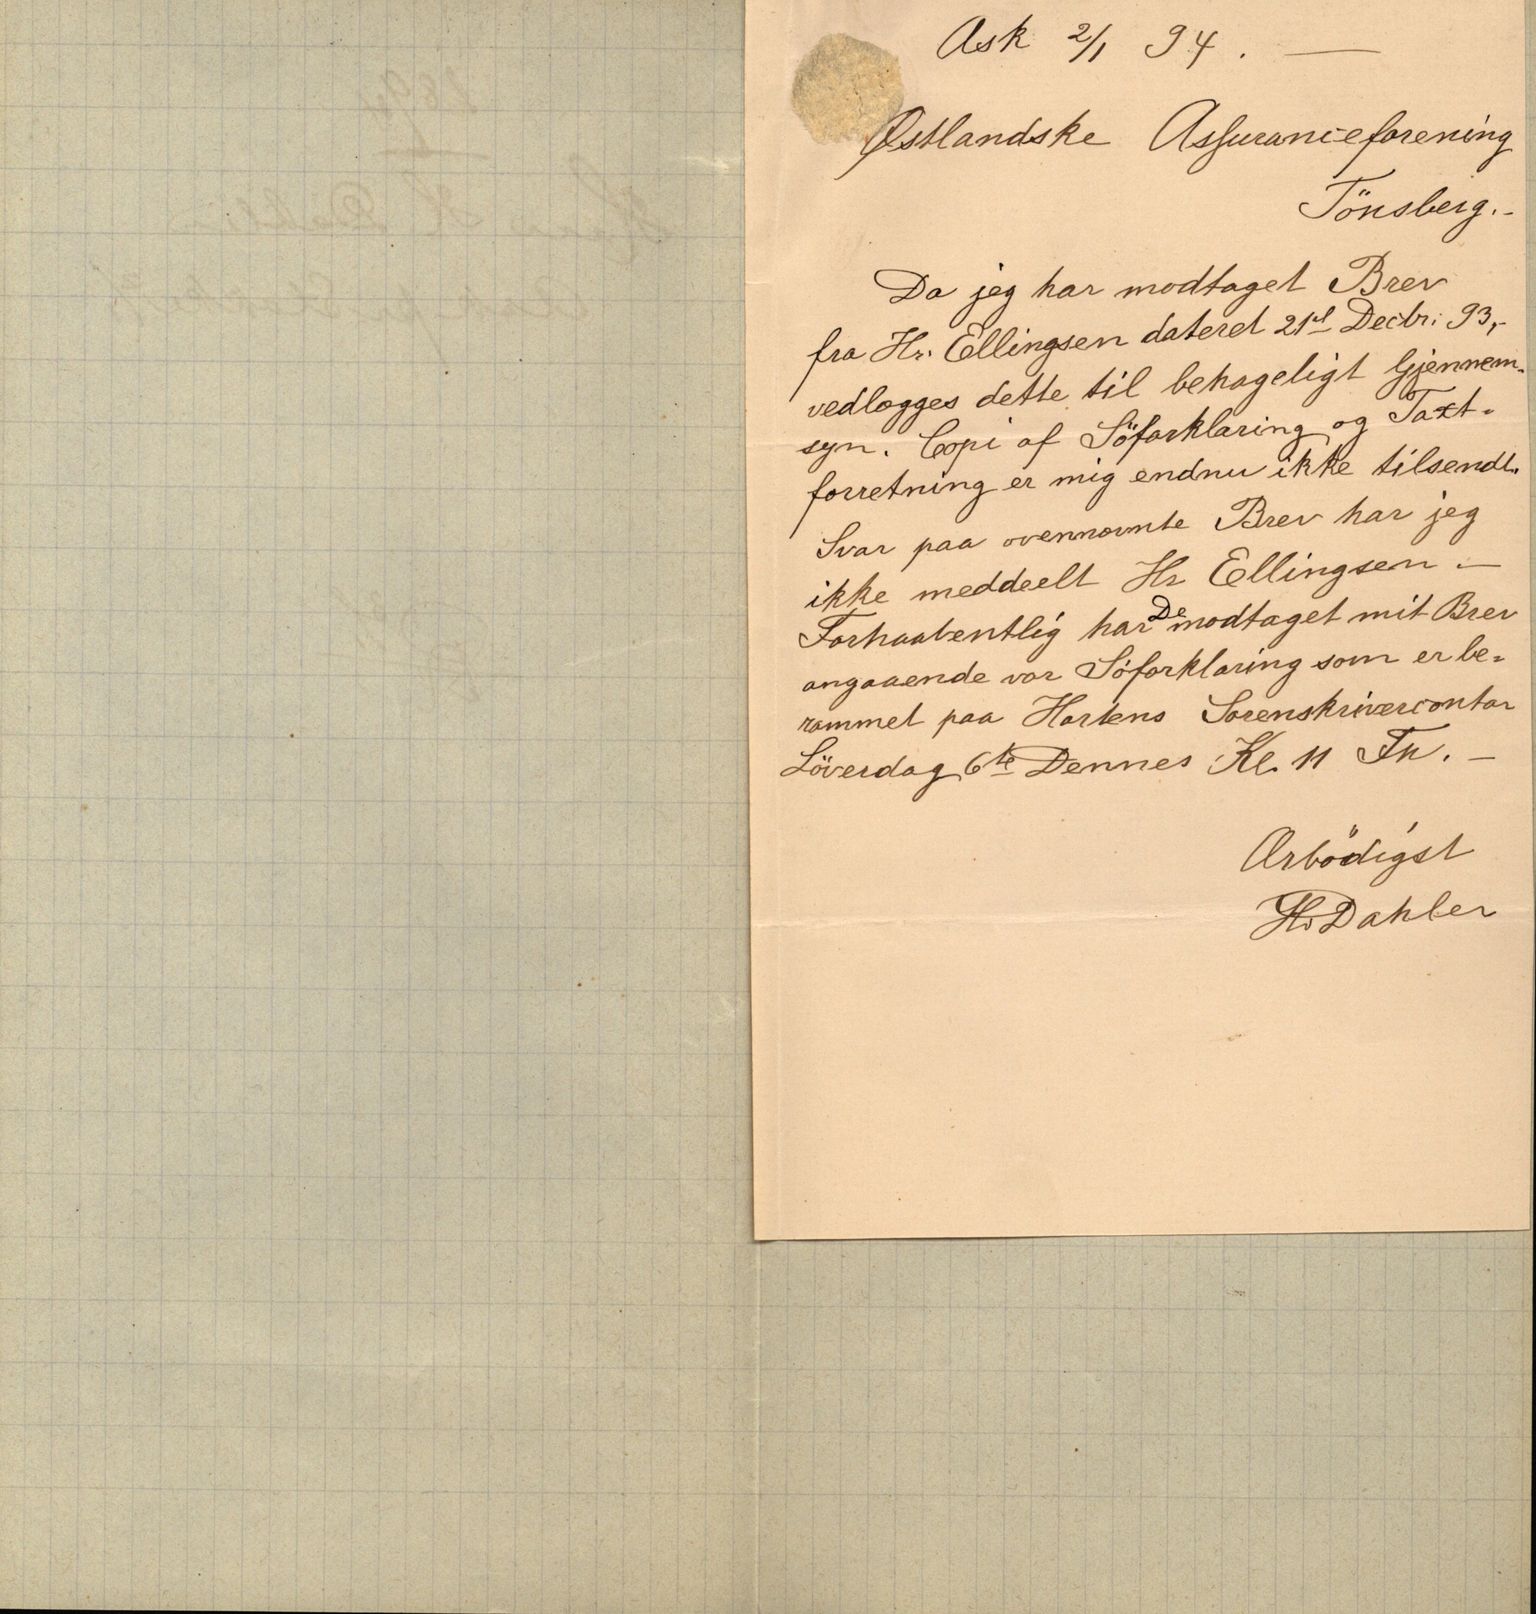 Ask 2/1 94. —
Østlandske Assuranceforening
Tönsberg. -
Da jeg har modtaget Brev
fra Hr. Ellingsen dateret 21de Decbr: 93,-
vedlægges dette til behageligt Gjennem-
syn. Copi af Söforklaring og Taxt-
forretning er mig endnu ikke tilsendt.
Svar paa ovennævnte Brev har jeg
ikke meddeelt Hr Ellingsen. —
Forhaabentlig har De modtaget mit Brev
angaaende vor Söforklaring som er be-
rammet paa Hortens Sorenskrivercontor
Löverdag 6te Dennes Kl. 11 Fm. —
Ærbödigst
H. Dahler